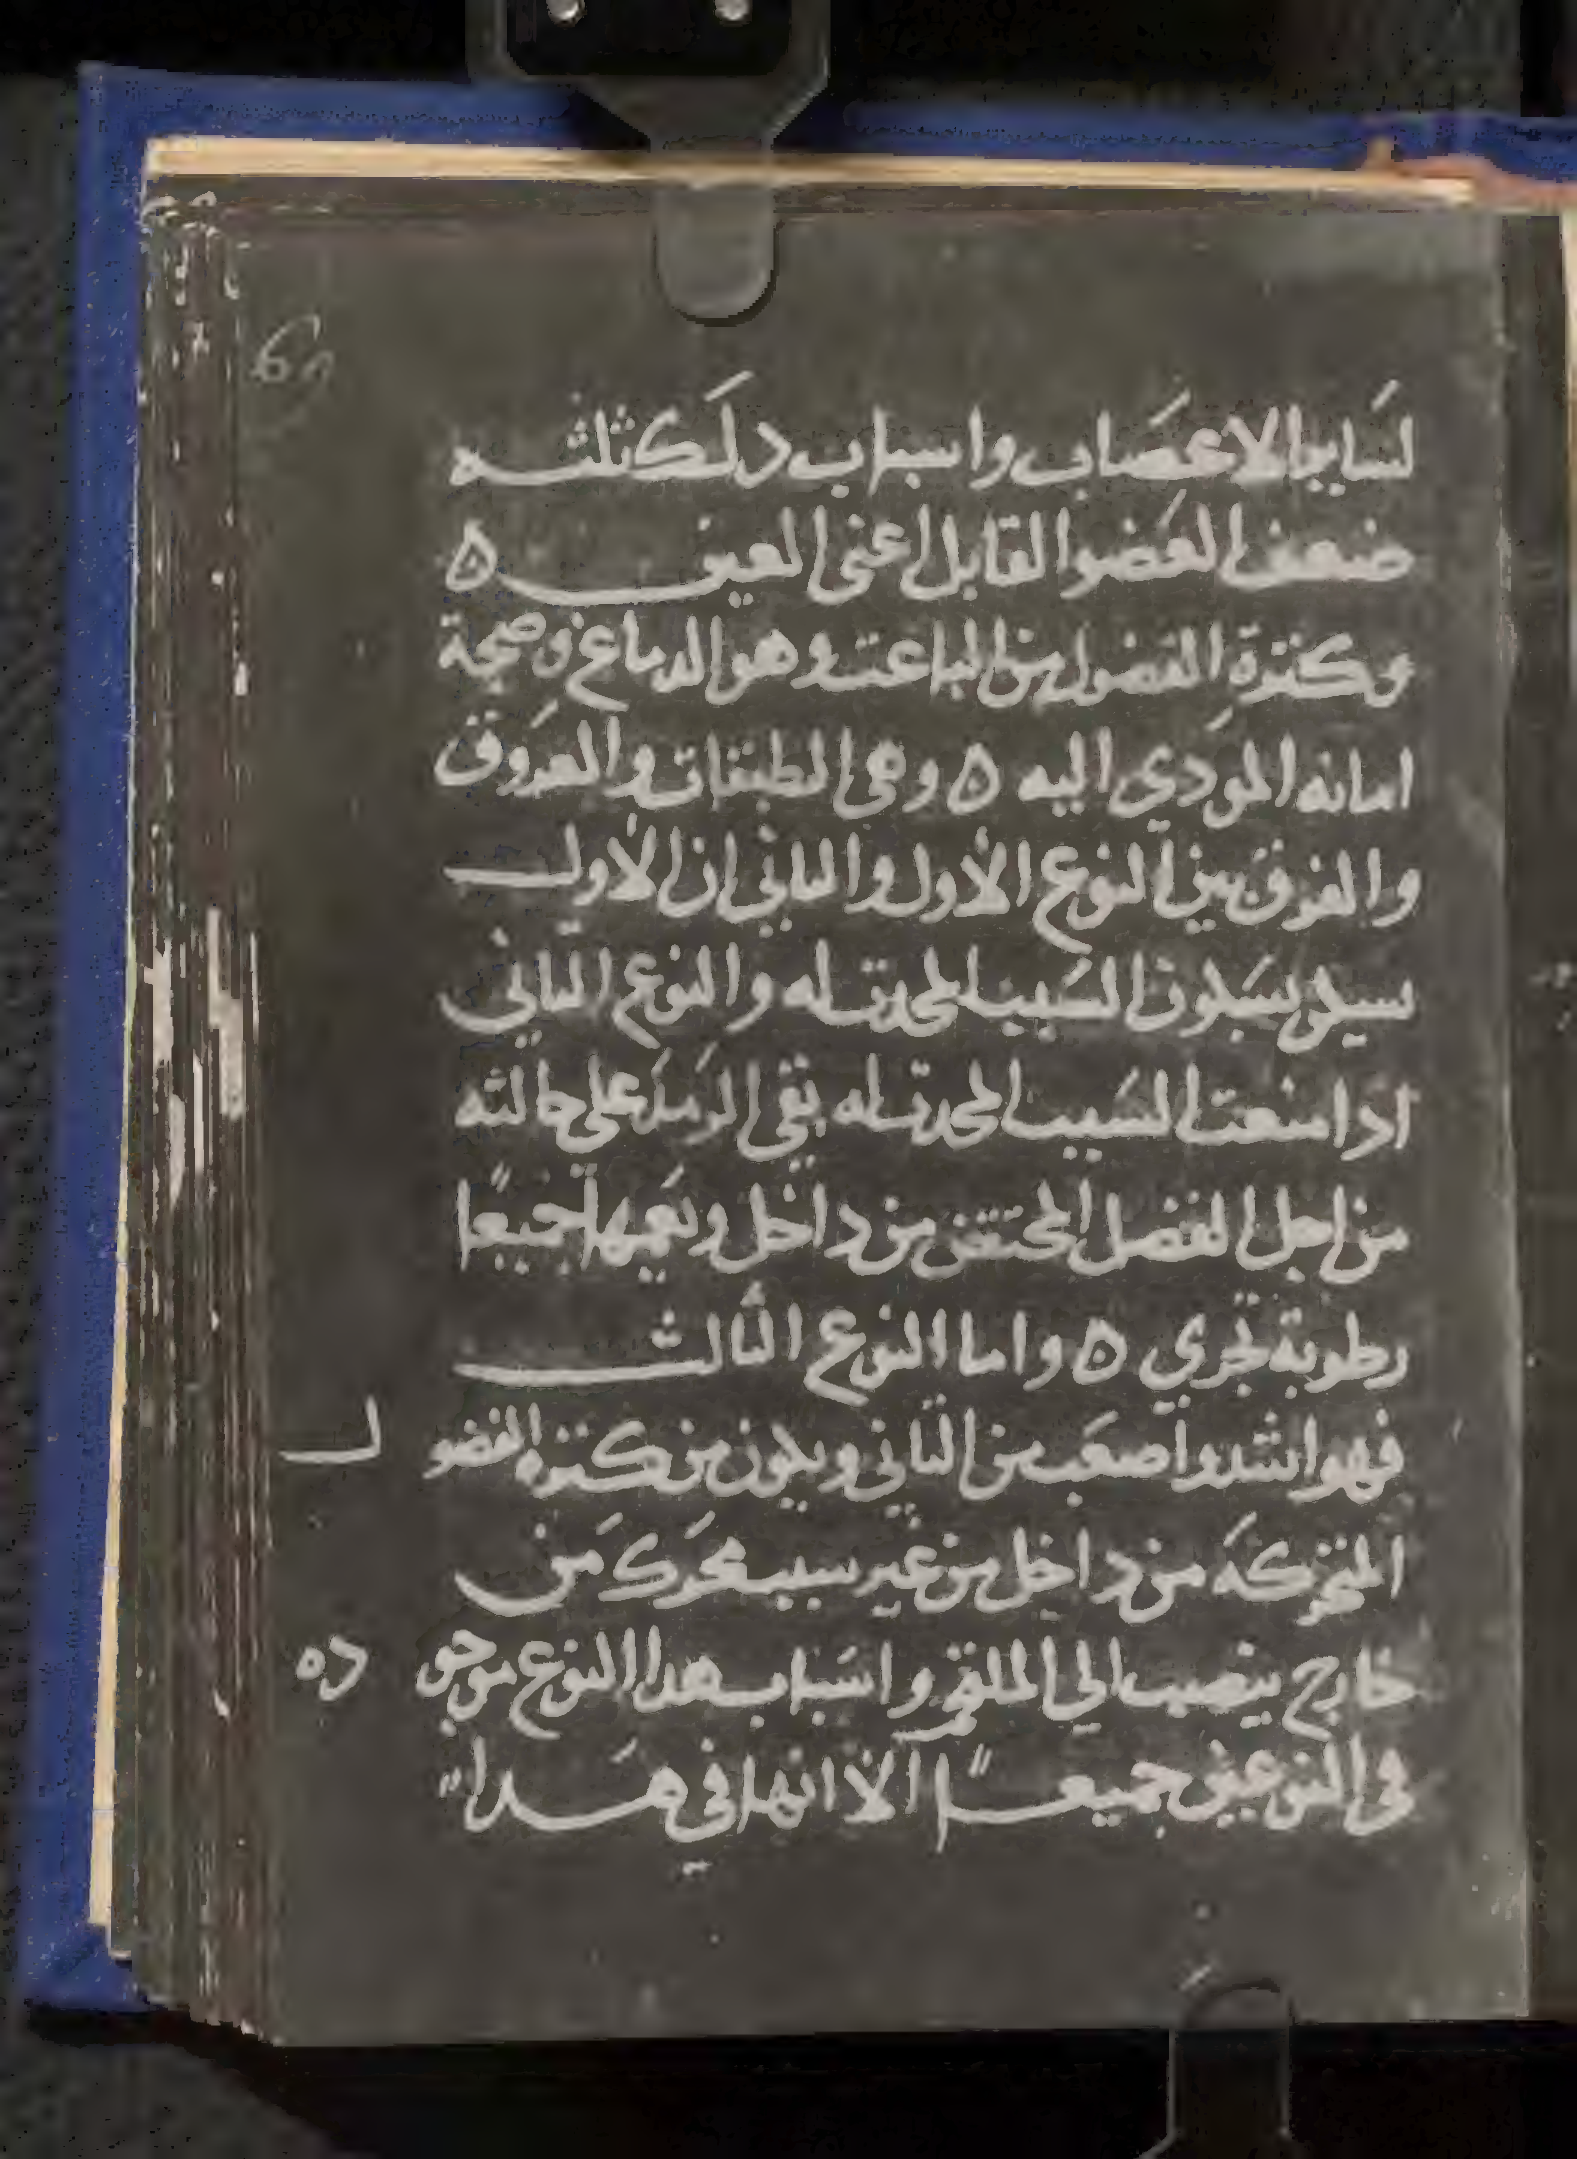 60
لساير الاعصاب واسباب دلك ثلثه
ضعف العضو القابل اعنى العين ه
وكثرة الفضول من الباعث وهو الدماغ وصحة
امانه المودي اليه ه وهى الطبقات والعروق
والفرق بين النوع الاول والثاني ان الاول
سيلى بسكون السبب المحدث له والنوع الثاني
ادا منعت السبب المحدث له بقى الرمد على حالته
من اجل الفضل المحتقن من داخل ويعمها جميعًا
رطوبة تجري ه واما النوع الثالث
فهو اشد واصعب من الثاني ويكون من كثرة الفضول
المتحركة من داخل من غير سبب محرك من
خارج ينصب الي الملتحم واسباب هدا النوع موجوده
فى النوعين جميعًا الا انها في هدا